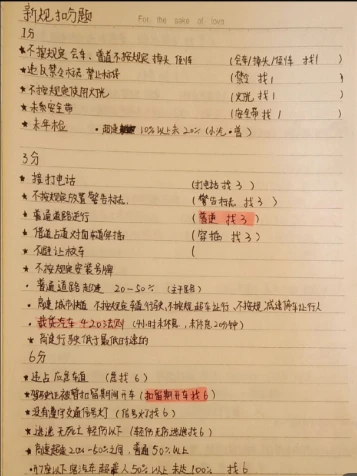 新规扣分题
For the sake of love
1分
★不按规定会车、普道不按规定掉头 停车 (会车/掉头/停车 找1)
★违反禁令标志 禁止标线 (禁令 找1)
★不按规定使用灯光 (灯光 找1)
★未系安全带 (安全带 找1)
★未年检 • 超速 10%以上未20% (小光•普)
3分
★ 拨打电话 (打电话 找3)
★ 不按规定放置警告标志. (警告标志 找3)
★ 普通道路逆行 (普逆 找3)
★ 借道占道对面车道穿插 (穿插 找3)
★ 不避让校车 (
★ 不按规定安装号牌
• 普通道路超速 20-50%
• 高速 城市快速 不按规定车道行驶,不按规超车让行,不按规 减速停车让行人
• 载货汽车 420法则 (4小时未休息,未停息20分钟)
★ 高速行驶低于最低时速的
6分
★ 违占应急车道 (急找6)
★驾驶证被暂扣留期间开车 (扣留期开车找6)
★没有遵守交通信号灯 (信号灯找6)
★逃逸 无死亡 轻伤以下 (轻伤无伤逃逸找6)
★高速超速 20%-50%之间,普通 50%以上